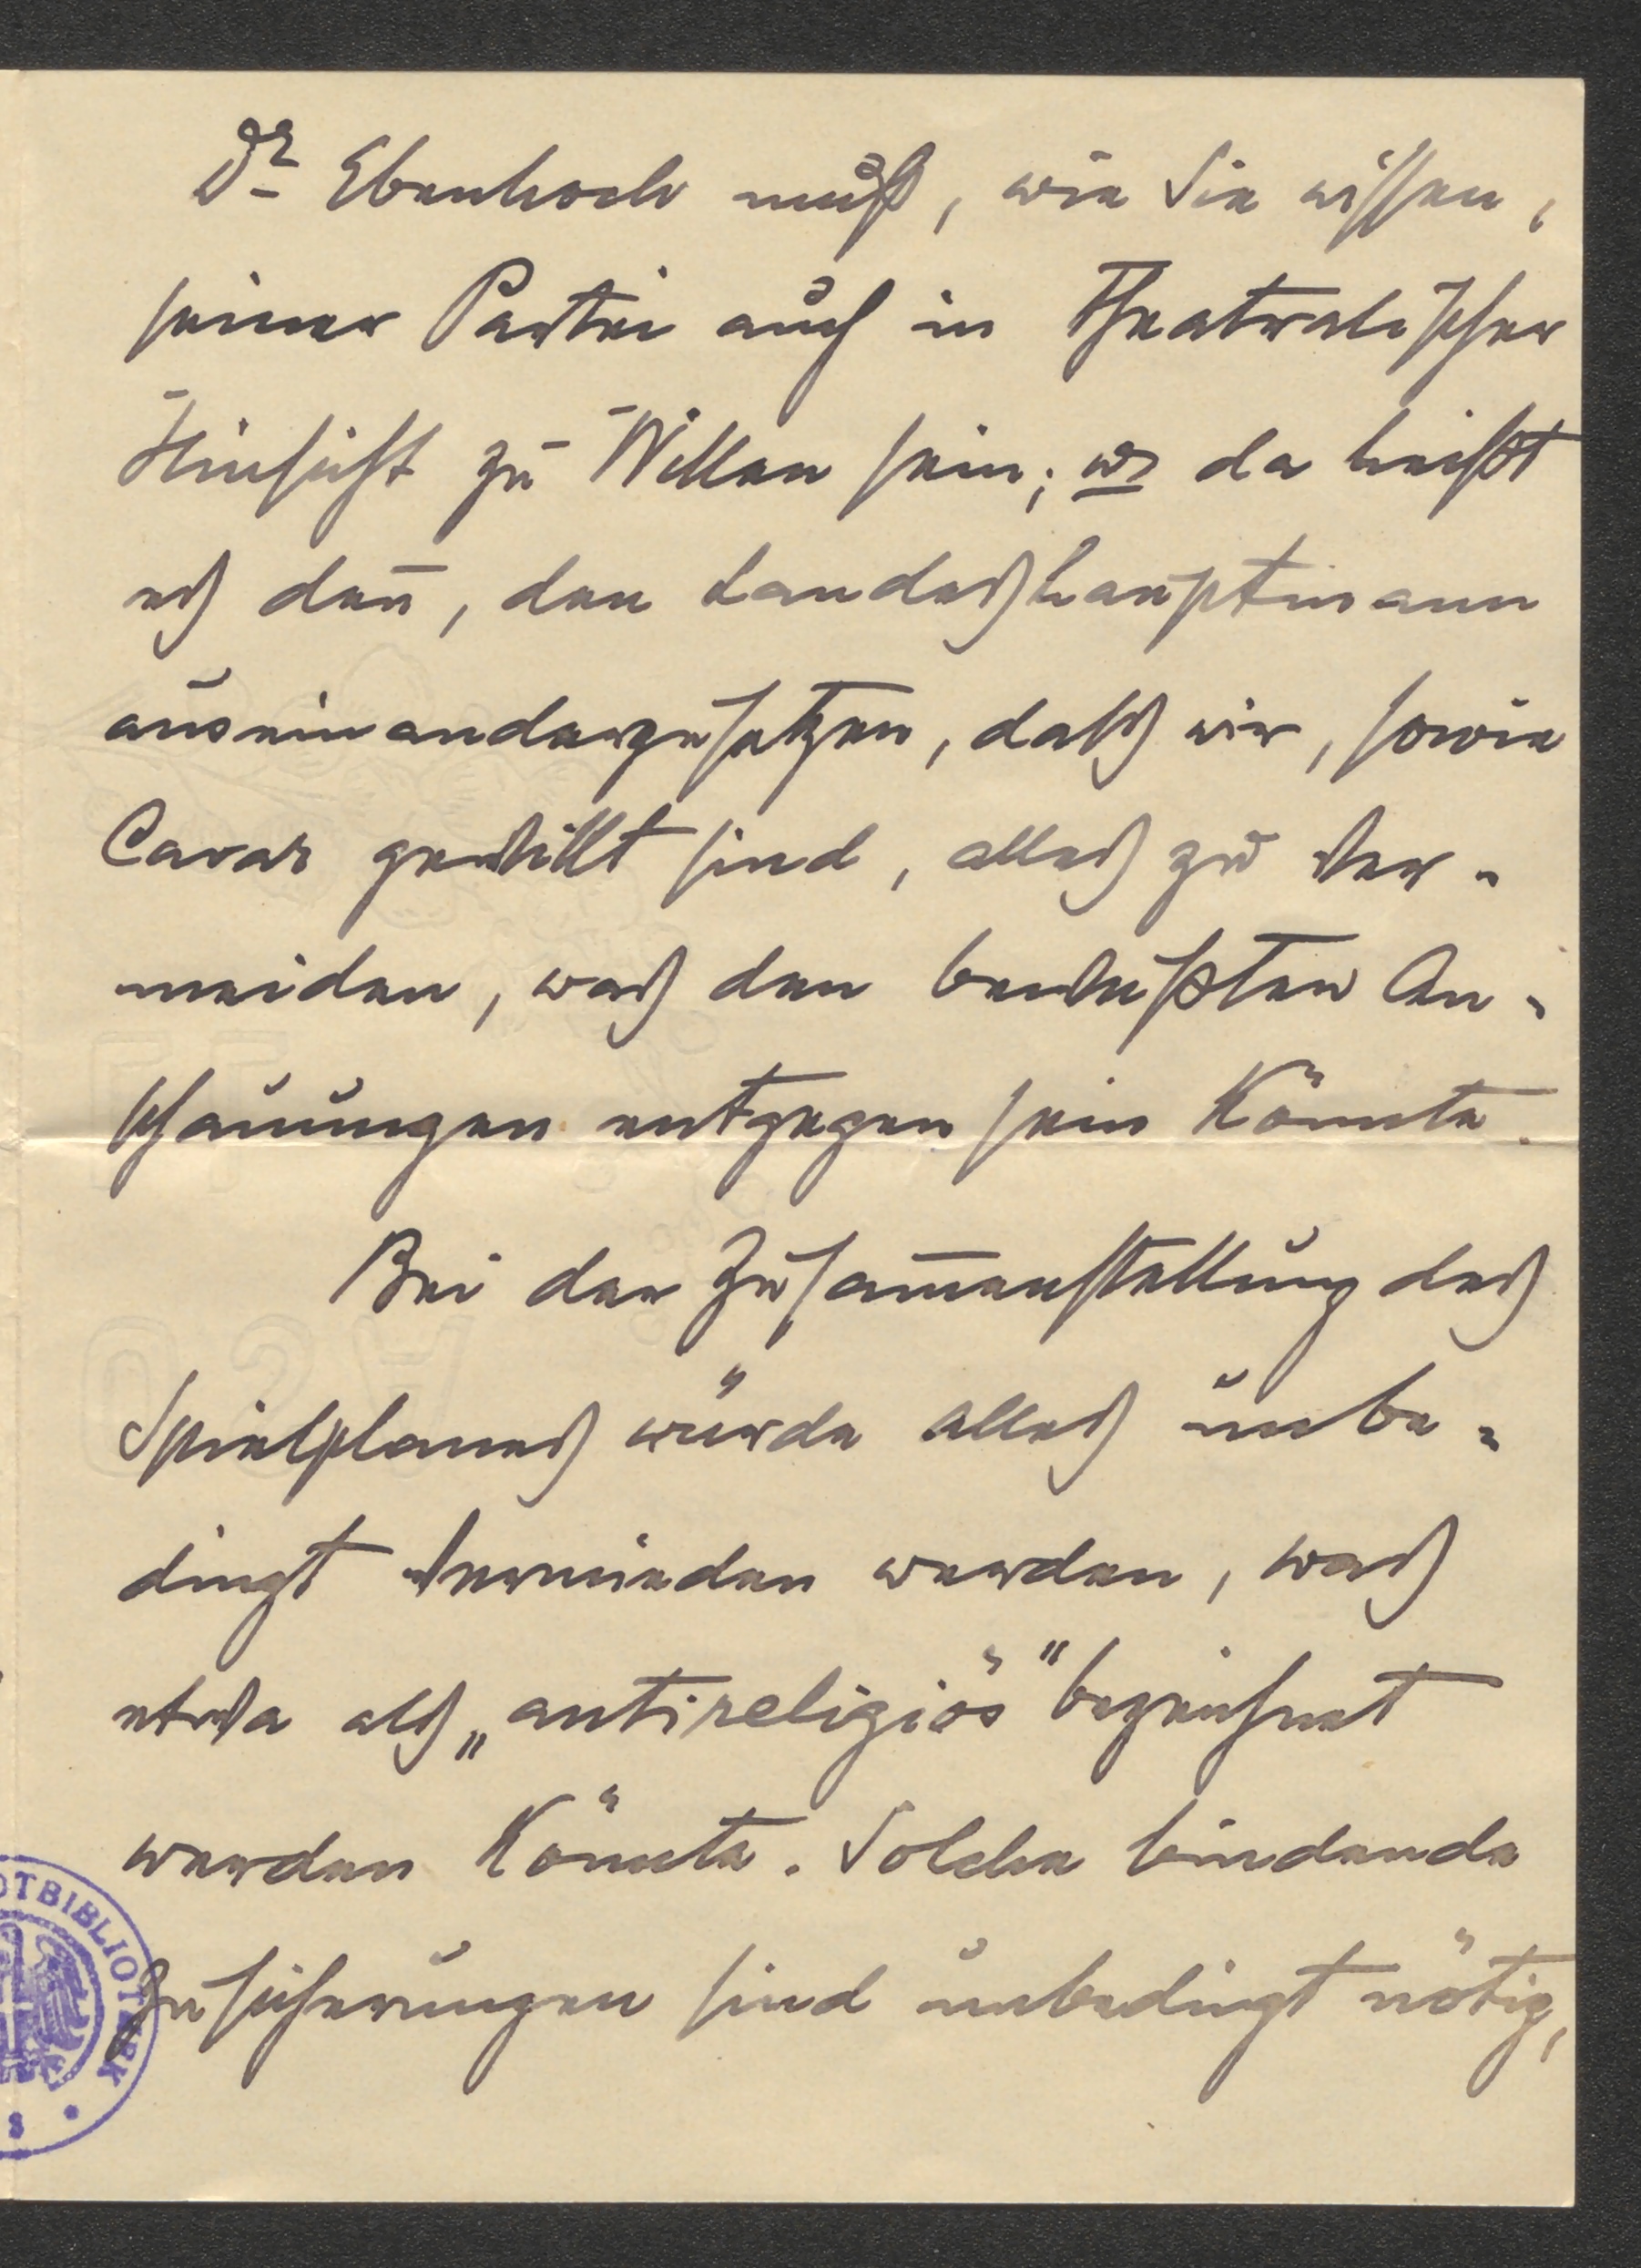 Dr Ebenhoch muß, wie Sie wissen,
seiner Partei auch in theatralischer
Hinsicht zu Willen sein; da heißt
es den̄, den Landeshauptmann
auseinanderzusetzen, dass wir, sowie
Cavar gewillt sind, alles zu ver-
meiden, was den bewußten An-
schauungen entgegen sein könnte.
Bei der Zusam̄enstellung des
Spielplanes würde alles unbe-
dingt vermieden werden, was
etwa als „antireligiös" bezeichnet
werden könnte. Solche bindende
Zusicherungen sind unbedingt nötig,
OTBIBLIOTHEK